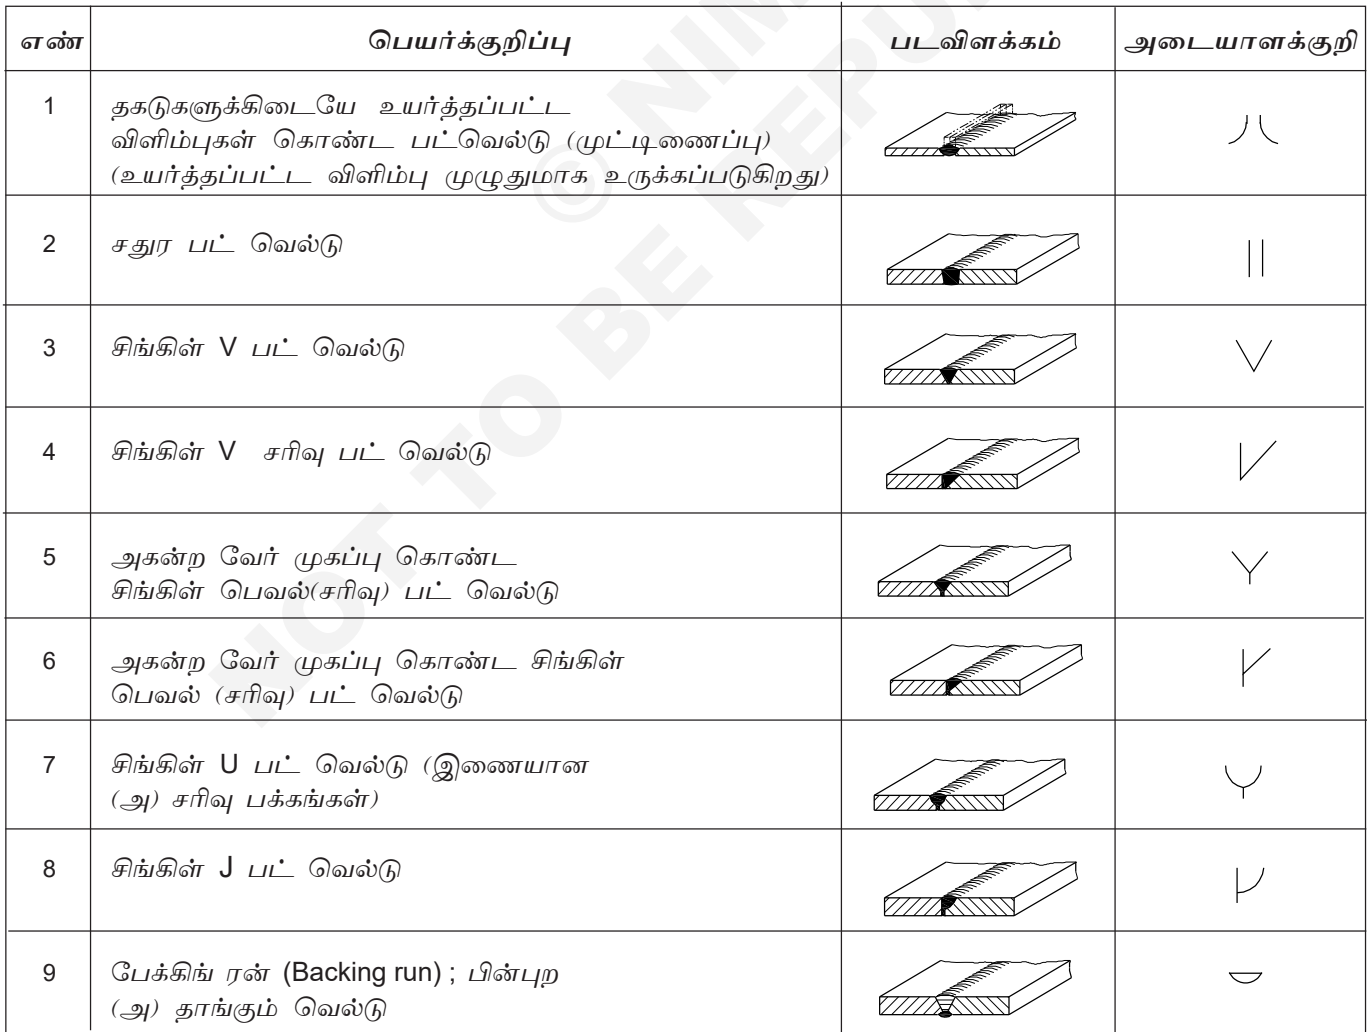 எண் பெயர்க்குறிப்பு படவிளக்கம் அடையாளக்குறி
1 தகடுகளுக்கிடையே உயர்த்தப்பட்ட
விளிம்புகள் கொண்ட பட்வெல்டு (முட்டிணைப்பு)
(உயர்த்தப்பட்ட விளிம்பு முழுதுமாக உருக்கப்படுகிறது)
2 சதுர பட் வெல்டு
3 சிங்கிள் V பட் வெல்டு
4 சிங்கிள் V சரிவு பட் வெல்டு
5 அகன்ற வேர் முகப்பு கொண்ட
சிங்கிள் பெவல்(சரிவு) பட் வெல்டு
6 அகன்ற வேர் முகப்பு கொண்ட சிங்கிள்
பெவல் (சரிவு) பட் வெல்டு
7 சிங்கிள் U பட் வெல்டு (இணையான
(அ) சரிவு பக்கங்கள்)
8 சிங்கிள் J பட் வெல்டு
9 பேக்கிங் ரன் (Backing run) ; பின்புற
(அ) தாங்கும் வெல்டு
© NIM
NOT TO BE REPU